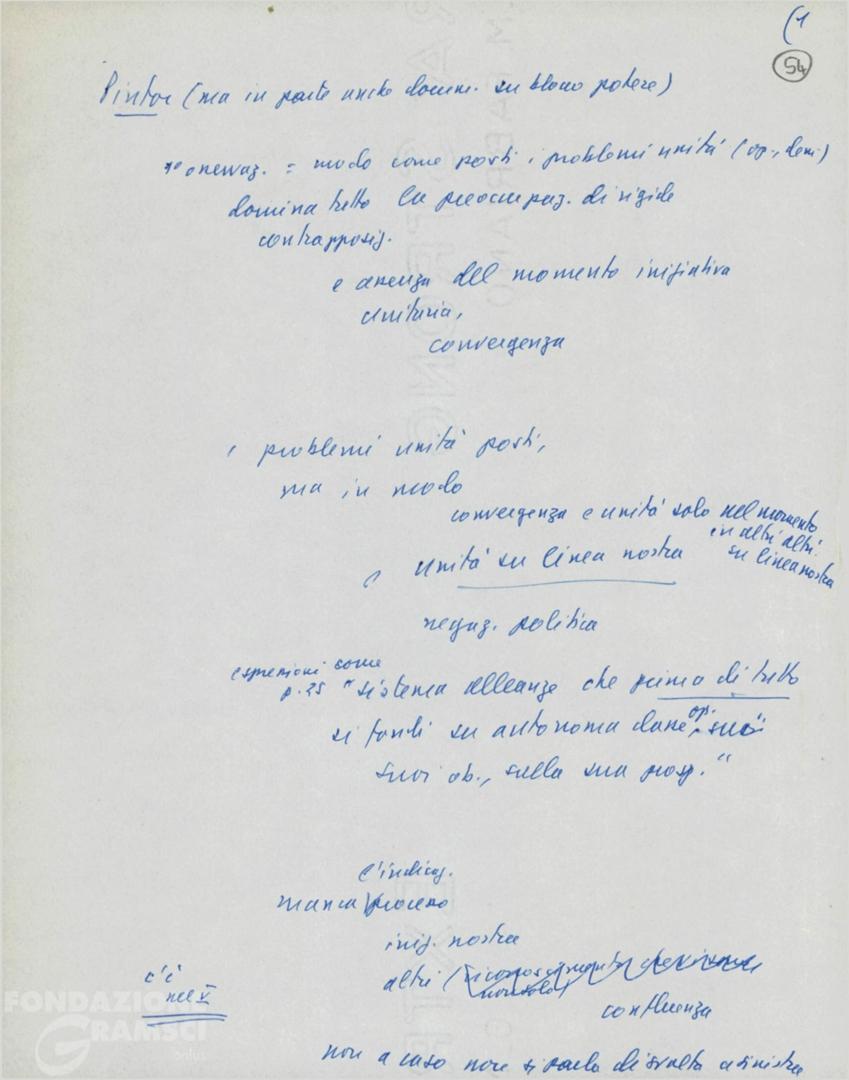 (1
54
Pintor (ma in parte anche docum. su blocco potere)
1° osservaz. = modo come posti i problemi unità (op., dem.)
domina tutto la preoccupaz. di rigide
contrapposiz.
e assenza del momento iniziativa
unitaria,
convergenza
i problemi unità posti,
ma in modo
convergenza e unità solo nel momento
in altri altri
su linea nostra
unità su linea nostra
negaz. politica
espressioni come
p. 25 "sistema alleanze che prima di tutto
si fondi su autonoma classe op., suoi
suoi ob., sulla sua prosp."
l'indicaz.
manca processo
iniz. nostra
altri (
confluenza
c'è
nel V
non a caso non si parla di svolta a sinistra
FONDAZIONE
GRAMSCI
onlus